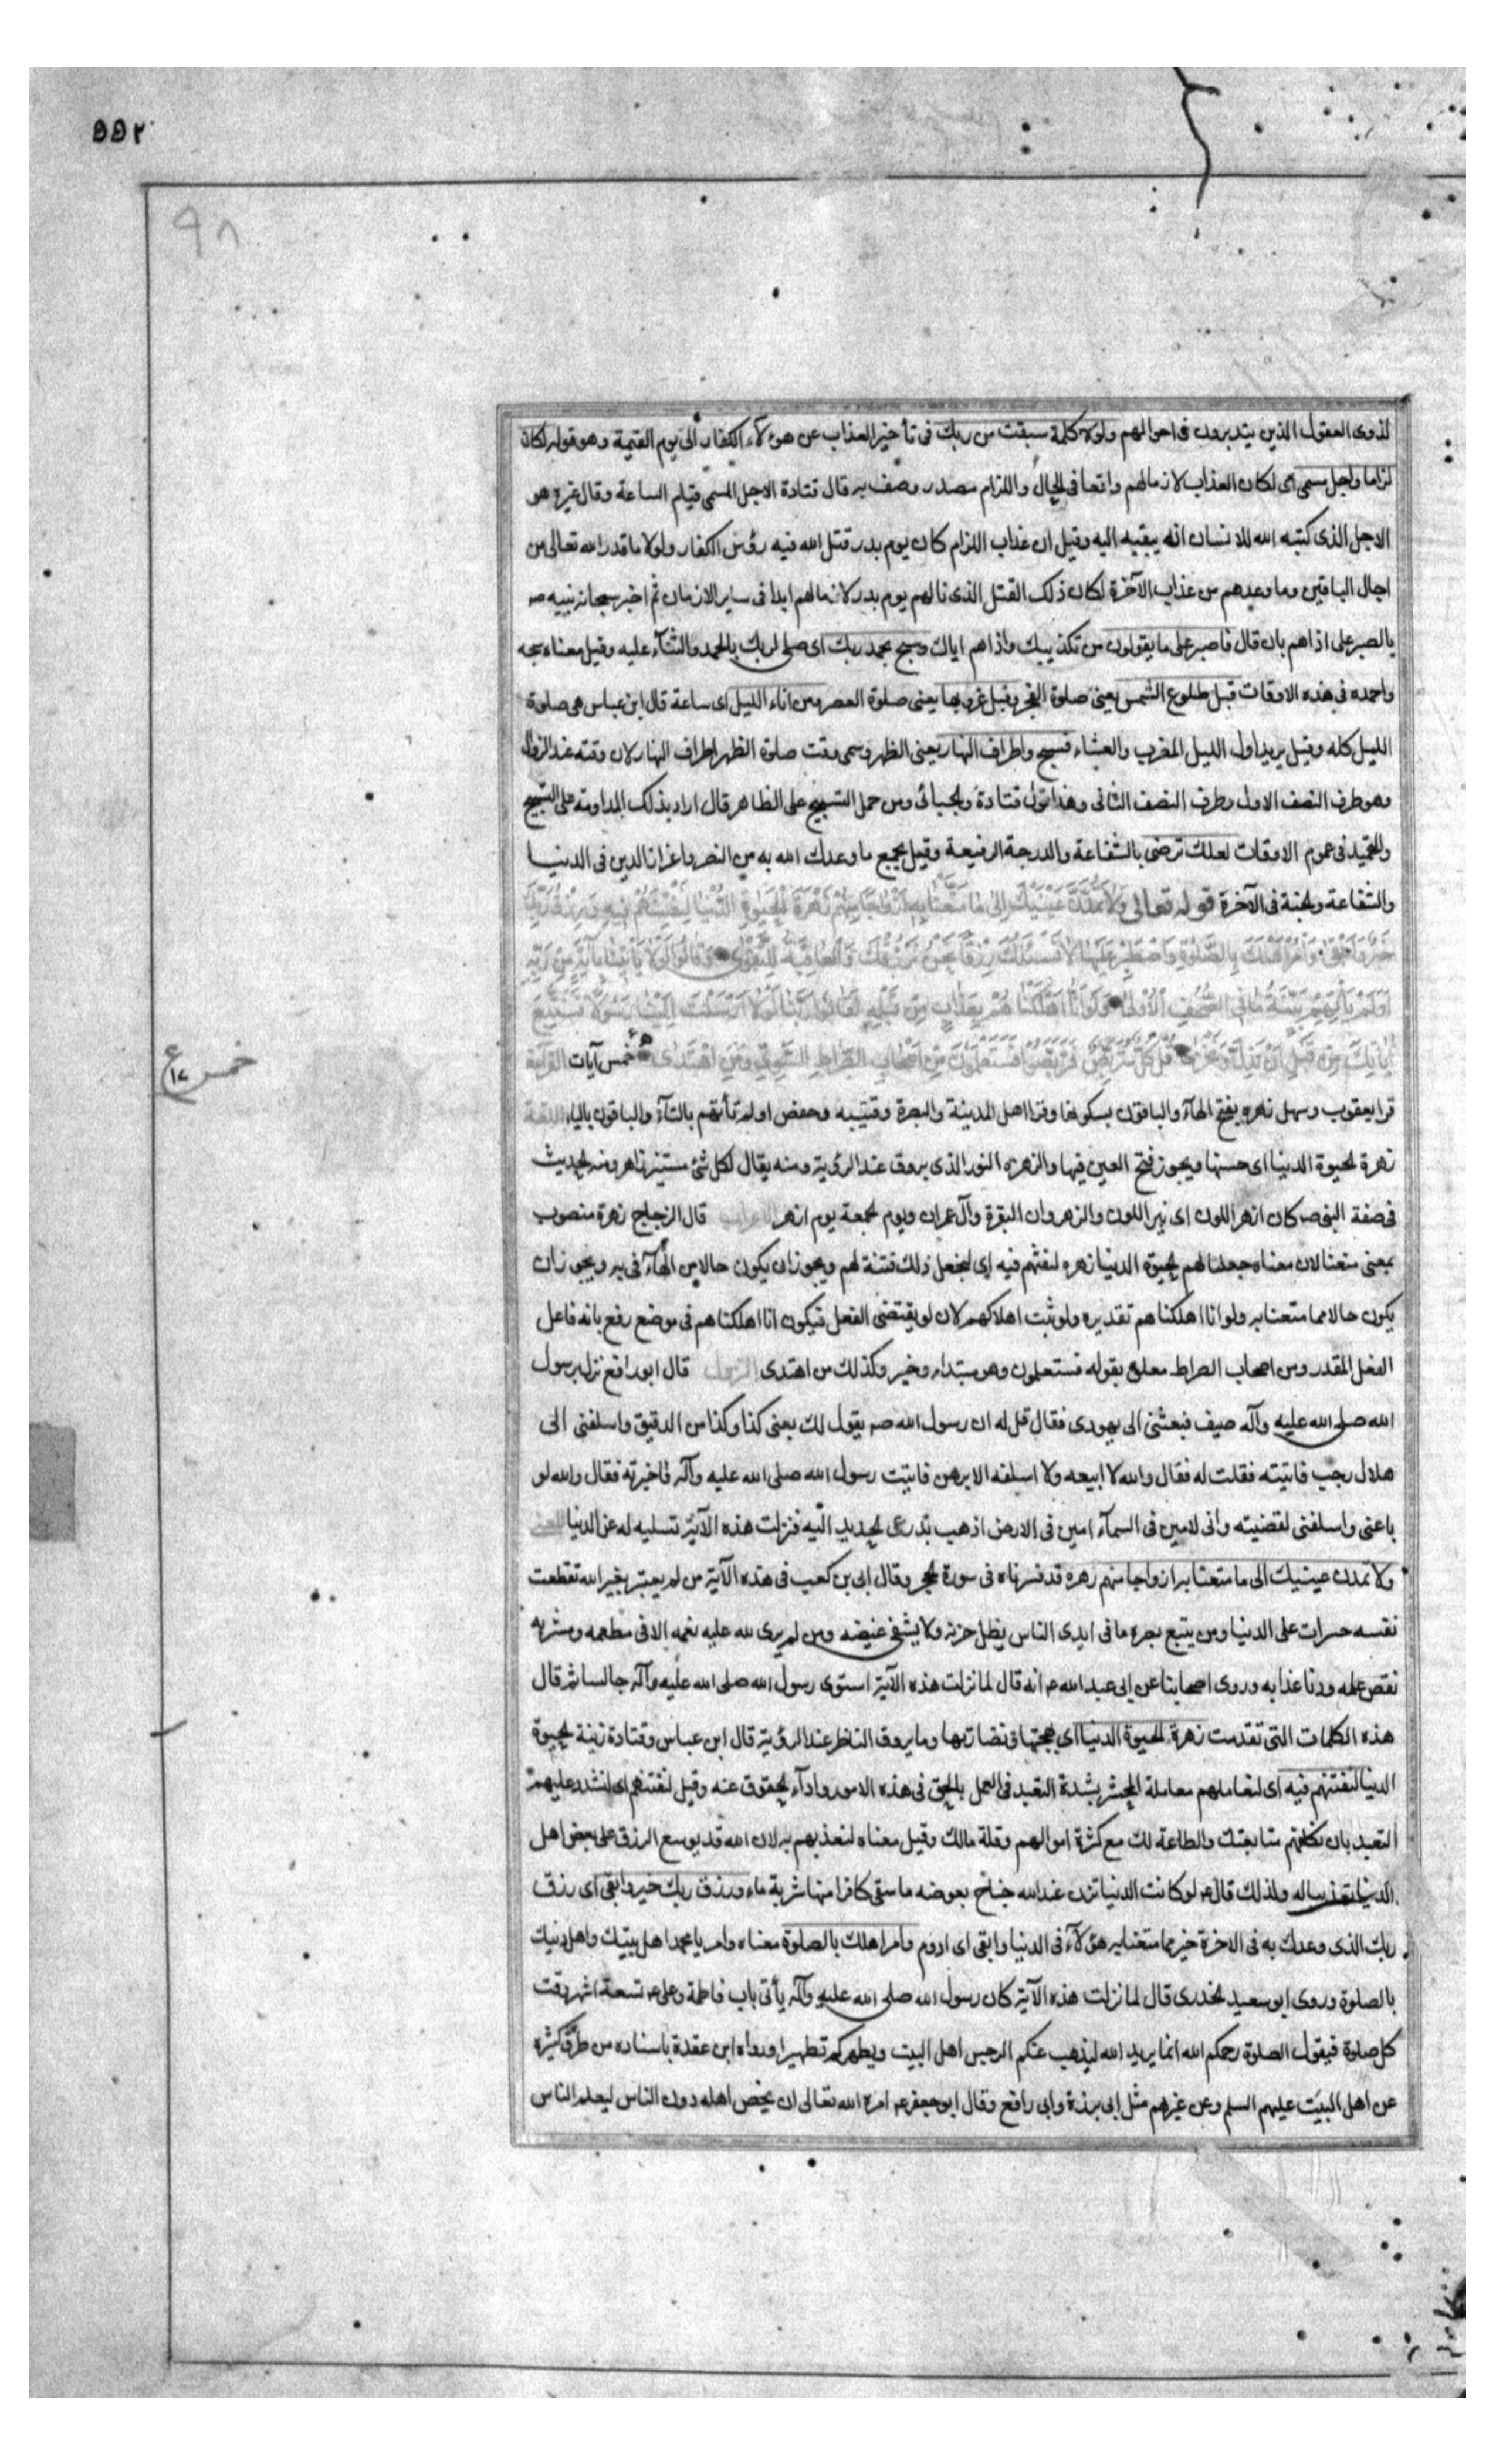 ٥٥٢
٩٨
لذوى العقول الذين يتدبرون فى احوالهم ولولا كلمة سبقت من ربك فى تأخير العذاب عن هؤلآء الكفار الى يوم القيمة وهو قوله لكان
لزاما واجل مسمى اى لكان العذاب لازما لهم واقعا فى الحال واللزام مصدر وصف به قال قتادة الاجل المسمى قيام الساعة وقال غيره هو
الاجل الذى كتبه الله للانسان انه يبقيه اليه وقيل ان عذاب اللزام كان يوم بدر قتل الله فيه رؤس الكفار ولولا ما قدر الله تعالى من
اجال الباقين وما وعدهم من عذاب الآخرة لكان ذلك القتل الذى نالهم يوم بدر لازما لهم ابدا فى ساير الازمان ثم اخبر سبحانه نبيه صه
بالصبر على اذاهم بان قال فاصبر على ما يقولون من تكذيبك واذاهم اياك وسبح بحمد ربك اى صلى لربك بالحمد والثنآء عليه وقيل معناه سبحه
واحمده فى هذه الاوقات قبل طلوع الشمس يعنى صلوة الفجر وقبل غروبها يعنى صلوة العصر ومن اناء الليل اى ساعة قال ابن عباس هى صلوة
الليل كله وقيل يريد اول الليل المغرب والعشاء فسبح واطراف النهار يعنى الظهر وسمى وقت صلوة الظهر اطراف النهار لان وقته عند الزوال
وهو طرف النصف الاول وطرف النصف الثانى وهذا قول قتادة والجبائى ومن حمل التسبيح على الظاهر قال اراد بذلك المداومة على التسبيح
والتحميد فى عموم الاوقات لعلك ترضى بالشفاعة والدرجة الرفيعة وقيل بجميع ما وعدك الله به من النصر واعزاز الدين فى الدنيا
والشفاعة والجنة فى الآخرة قوله تعالى وَلَا تَمُدَّنَّ عَيْنَيْكَ اِلٰى مَا مَتَّعْنَا بِهِ اَزْوَاجًا مِنْهُمْ زَهْرَةَ الْحَيٰوةِ الدُّنْيَا لِنَفْتِنَهُمْ فِيهِ وَرِزْقُ رَبِّكَ
خَيْرٌ وَاَبْقٰى وَأْمُرْ اَهْلَكَ بِالصَّلٰوةِ وَاصْطَبِرْ عَلَيْهَا لَا نَسْئَلُكَ رِزْقًا نَحْنُ نَرْزُقُكَ وَالْعَاقِبَةُ لِلتَّقْوٰى وَقَالُوا لَوْلَا يَأْتِينَا بِآيَةٍ مِنْ رَبِّهِ
اَوَلَمْ تَأْتِهِمْ بَيِّنَةُ مَا فِى الصُّحُفِ الْاُولٰى وَلَوْ اَنَّا اَهْلَكْنَاهُمْ بِعَذَابٍ مِنْ قَبْلِهِ لَقَالُوا رَبَّنَا لَوْلَا اَرْسَلْتَ اِلَيْنَا رَسُولًا فَنَتَّبِعَ
آيَاتِكَ مِنْ قَبْلِ اَنْ نَذِلَّ وَنَخْزٰى قُلْ كُلٌّ مُتَرَبِّصٌ فَتَرَبَّصُوا فَسَتَعْلَمُونَ مَنْ اَصْحَابُ الصِّرَاطِ السَّوِىِّ وَمَنِ اهْتَدٰى خمس آيات القراءة
خمس
ع
١٧
قرا يعقوب وسهل زهرة بفتح الهآء والباقون بسكونها وقرا اهل المدينة والبصرة وقتيبه وحفص اولم تأتهم بالتآء والباقون بالياء اللغة
زهرة الحيوة الدنيا اى حسنها ويجوز فتح العين فيها والزهرة النور الذى يروق عند الرؤية ومنه يقال لكل شئ مستنير زاهر ومنه الحديث
فى صفة النبى صه كان ازهر اللون اى نير اللون والزهروان البقرة وآل عمران ويوم الجمعة يوم ازهر الاعراب قال الزجاج زهرة منصوب
بمعنى متعنا لان معناه جعلنا لهم الحيوة الدنيا زهره لنفتنهم فيه اى لنجعل ذلك فتنة لهم ويجوز ان يكون حالا من الهآء فى به ويجوز ان
يكون حالا مما متعنا به ولو انا اهلكناهم تقديره ولو ثبت اهلاكهم لان لو يقتضى الفعل فيكون انا اهلكناهم فى موضع رفع بانه فاعل
الفعل المقدر ومن اصحاب الصراط معلق بقوله فستعلمون وهو مبتداء وخبر وكذلك من اهتدى النزول قال ابو رافع نزل برسول
الله صلى الله عليه وآله ضيف فبعثنى الى يهودى فقال قل له ان رسول الله صه يقول لك بعنى كذا وكذا من الدقيق واسلفنى الى
هلال رجب فاتيته فقلت له فقال والله لا ابيعه ولا اسلفه الا برهن فاتيت رسول الله صلى الله عليه وآله فاخبرته فقال والله لو
باعنى واسلفنى لقضيته وانى لامين فى السمآء امين فى الارض اذهب بدرعى الحديد اليه فنزلت هذه الآية تسليه له عن الدنيا المعنى
ولا تمدن عينيك الى ما متعنا به ازواجا منهم زهره قد فسرناه فى سورة الحجر وقال ابى بن كعب فى هذه الآية من لم يعتبر بغير الله تقطعت
نفسه حسرات على الدنيا ومن يتبع بصره ما فى ايدى الناس يطل حزنه ولا يشفى غيضه ومن لم يرى لله عليه نعمه الا فى مطعمه ومشربه
نقص عمله ودنا عذابه وروى اصحابنا عن ابى عبد الله عه انه قال لما نزلت هذه الآية استوى رسول الله صلى الله عليه وآله جالسا ثم قال
هذه الكلمات التى تقدمت زهرة الحيوة الدنيا اى بهجتها ونضارتها وما يروق الناظر عند الرؤية قال ابن عباس وقتادة زينة الحيوة
الدنيا لنفتنهم فيه اى لنعاملهم معاملة المختبر بشدة التعبد فى العمل بالحق فى هذه الامور وادآء الحقوق عنه وقيل لنفتنهم اى لنشدد عليهم
التعبد بان نكلفهم متابعتك والطاعة لك مع كثرة اموالهم وقلة مالك وقيل معناه لنعذبهم به لان الله قد يوسع الرزق على بعض اهل
الدنيا تعذيبا له ولذلك قال عه لو كانت الدنيا تزن عند الله جناح بعوضه ما سقى كافرا منها شربة ماء ورزق ربك خير وابقى اى رزق
ربك الذى وعدك به فى الاخرة خير مما متعنا به هؤلآء فى الدنيا وابقى اى ادوم وامر اهلك بالصلوة معناه وامر يا محمد اهل بيتك واهل دينك
بالصلوة وروى ابو سعيد الخدرى قال لما نزلت هذه الآية كان رسول الله صلى الله عليه وآله يأتى باب فاطمة وعلى عه تسعة اشهر وقت
كل صلوة فيقول الصلوة رحمكم الله انما يريد الله ليذهب عنكم الرجس اهل البيت ويطهركم تطهيرا ورواه ابن عقدة باسناده من طرق كثيره
عن اهل البيت عليهم السلم وعن غيرهم مثل ابى برزة وابى رافع وقال ابو جعفر عه امره الله تعالى ان يخص اهله دون الناس ليعلم الناس